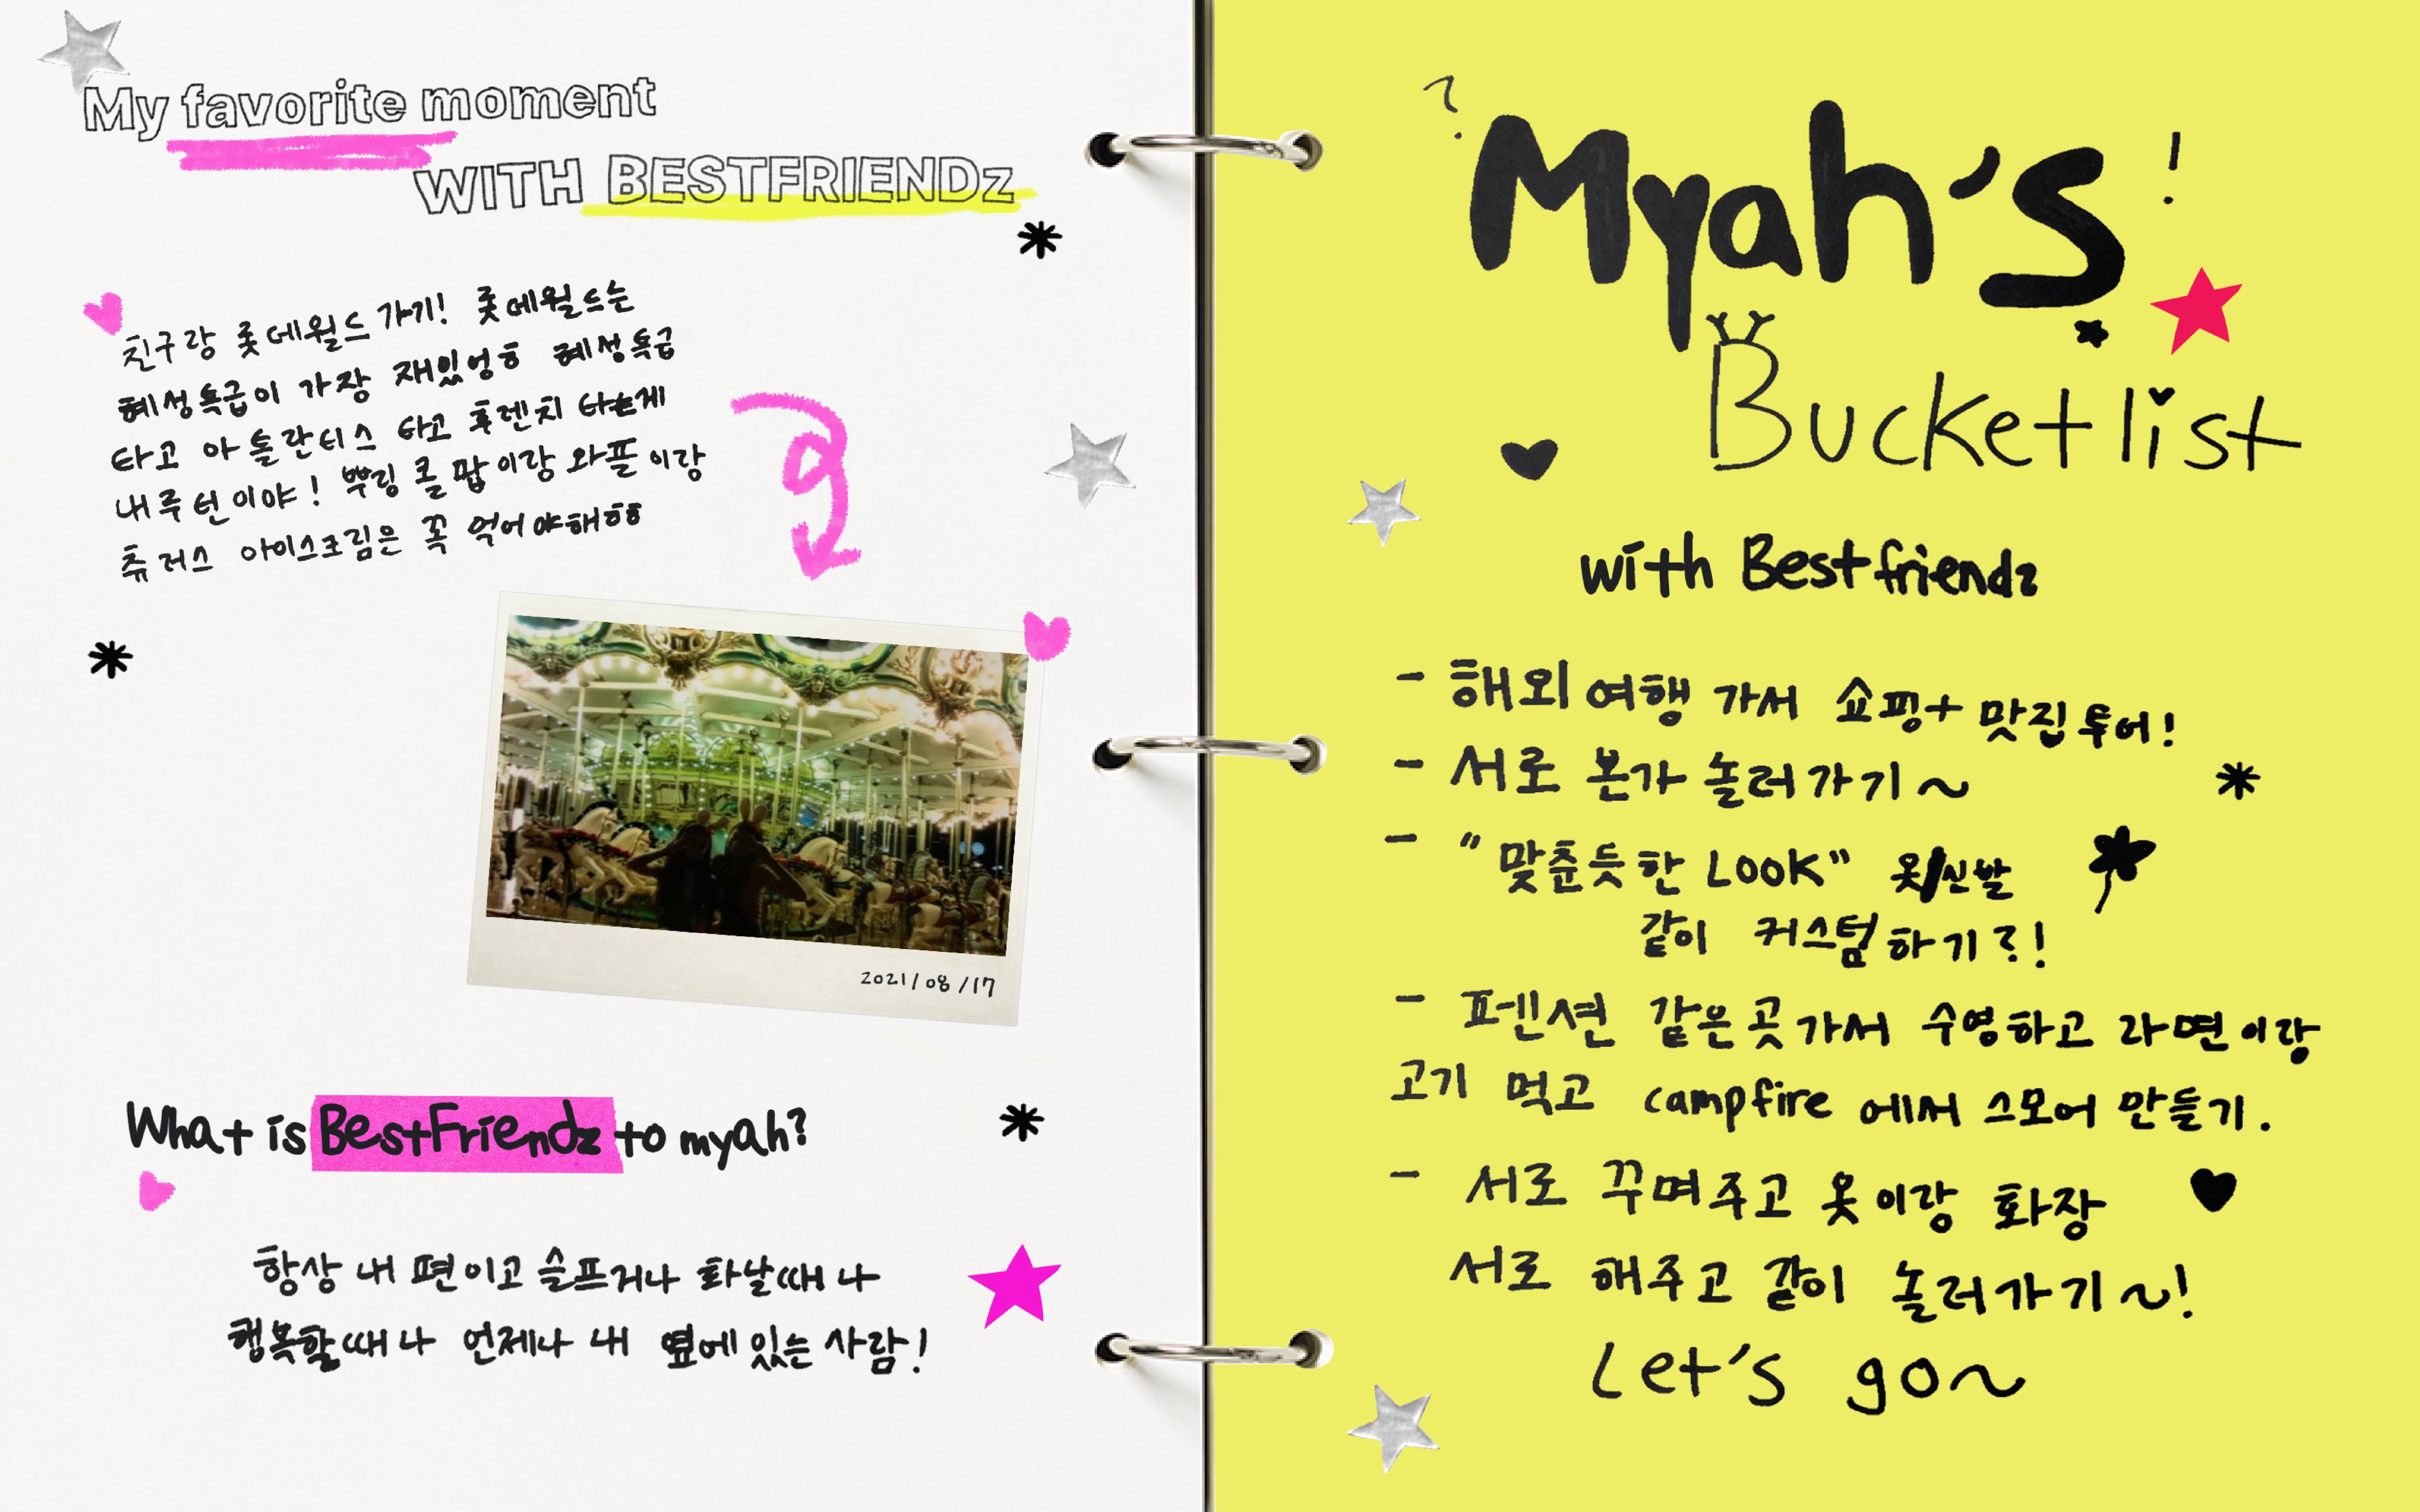 My favorite moment
WITH BESTFRIENDz
친구랑 롯데월드 가기! 롯데월드는
혜성특급이 가장 재있엉ㅎ 혜성특급
타고 아틀란티스 타고 후렌치 타는게
내 루틴이야! 뿌링 콜팝이랑 와플이랑
츄러스 아이스크림은 꼭 먹어야해ㅎㅎ
2021/08/17
What is BestFriendz to myah?
항상 내 편이고 슬프거나 화날때나
행복할때나 언제나 내 옆에 있는 사람!
? Myah's !
Bucketlist
with Bestfriendz
- 해외여행 가서 쇼핑+맛집투어!
- 서로 본가 놀러가기~
- "맞춘듯한 LOOK" 옷/신발
같이 커스텀하기?!
- 펜션 같은곳가서 수영하고 라면이랑
고기 먹고 campfire 에서 스모어 만들기.
- 서로 꾸며주고 옷이랑 화장
서로 해주고 같이 놀러가기~!
Let's go~